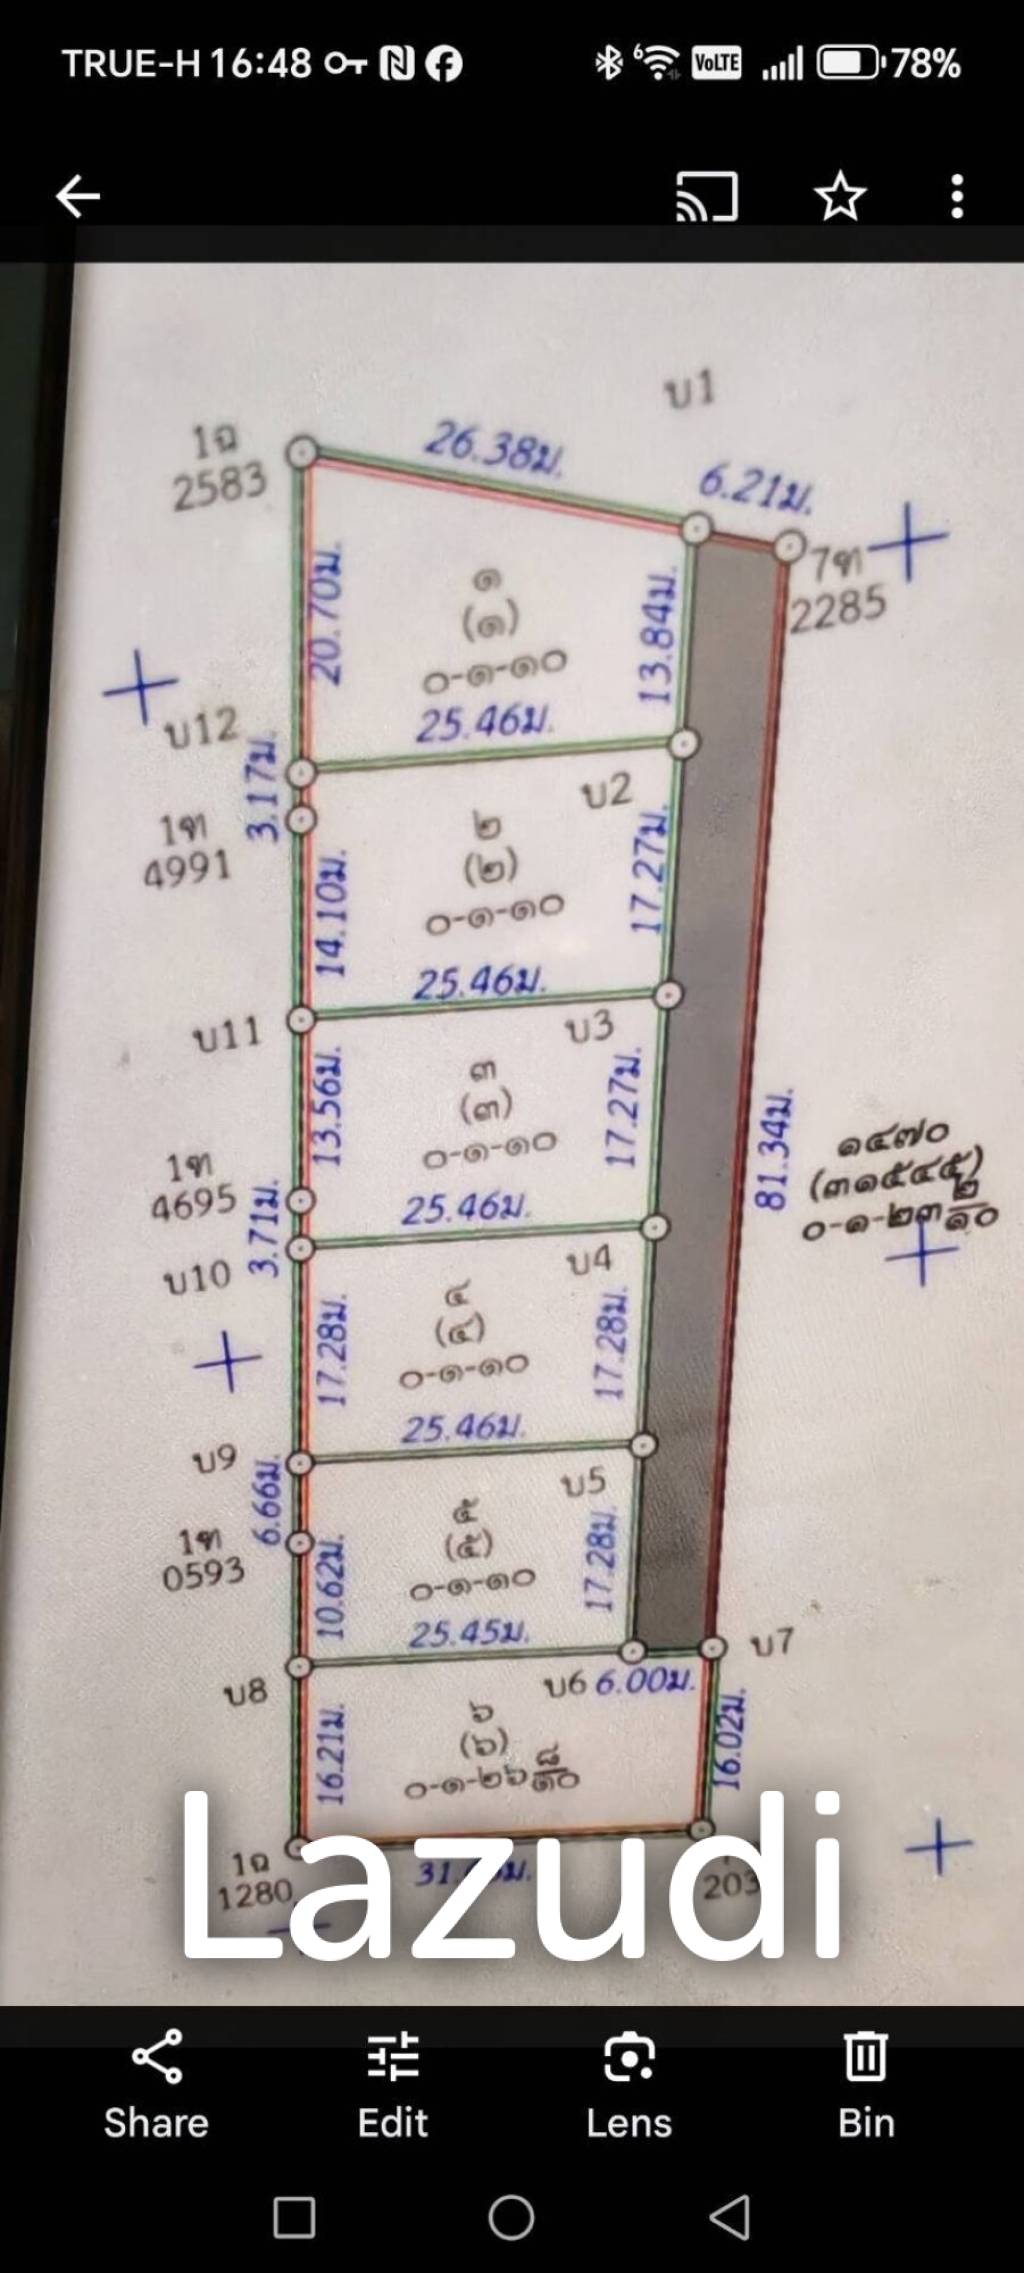 TRUE-H 16:48
6 VoLTE 78%
บ1
1ฉ
2583
26.38ม.
6.21ม.
7ท
2285
20.70ม.
๑
(๑)
๐-๑-๑๐
13.84ม.
25.46ม.
บ12
3.17ม.
บ2
1ท
4991
๒
(๒)
๐-๑-๑๐
14.10ม.
17.27ม.
25.46ม.
บ11
บ3
13.56ม.
๓
(๓)
๐-๑-๑๐
17.27ม.
81.34ม.
๑๔๗๐
(๓๑๕๔๕)
๐-๑-๒๓ ๒/๑๐
1ท
4695
3.71ม.
25.46ม.
บ10
บ4
17.28ม.
๔
(๔)
๐-๑-๑๐
17.28ม.
25.46ม.
บ9
6.66ม.
บ5
1ท
0593
๕
(๕)
๐-๑-๑๐
10.62ม.
17.28ม.
25.45ม.
บ7
บ8
บ6 6.00ม.
16.21ม.
๖
(๖)
๐-๑-๒๖ ๘/๑๐
16.02ม.
Lazudi
1ฉ
1280
Share
Edit
Lens
Bin